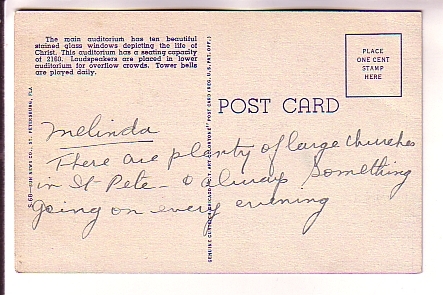 The main auditorium has ten beautiful
stained glass windows depicting the life of
Christ. This auditorium has a seating capacity
of 2160. Loudspeakers are placed in lower
auditorium for overflow crowds. Tower bells
are played daily.
PLACE
ONE CENT
STAMP
HERE
POST CARD
SUN NEWS CO., ST. PETERSBURG, FLA
Melinda
There are plenty of large churches
in St Pete - & always something
going on every evening